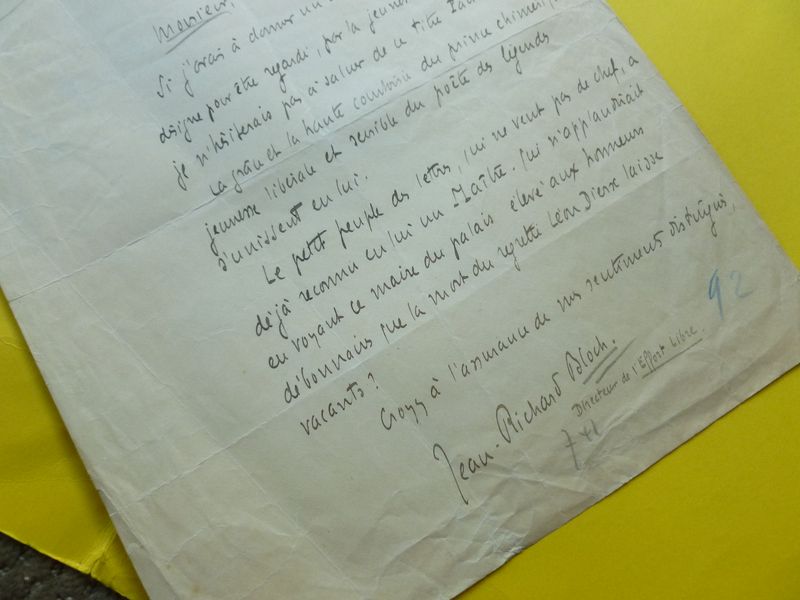 Monsieur,
Si j'avais à donner un
désigné pour être regardé, par la jeunesse
je n'hésiterais pas à saluer de ce titre
La grâce et la haute courtoisie du prince
jeunesse libérale et sensible du poëte des légendes
s'unissent en lui.
Le petit peuple des lettres, qui ne veut pas de chef, a
déjà reconnu en lui un Maître. Qui n'applaudirait
en voyant ce maire du palais élevé aux honneurs
débonnaires que la mort du regretté Léon Dierx laisse
vacants?
Croyez à l'assurance de mes sentiments distingués,
92
Jean-Richard Bloch.
Directeur de l'Effort Libre.